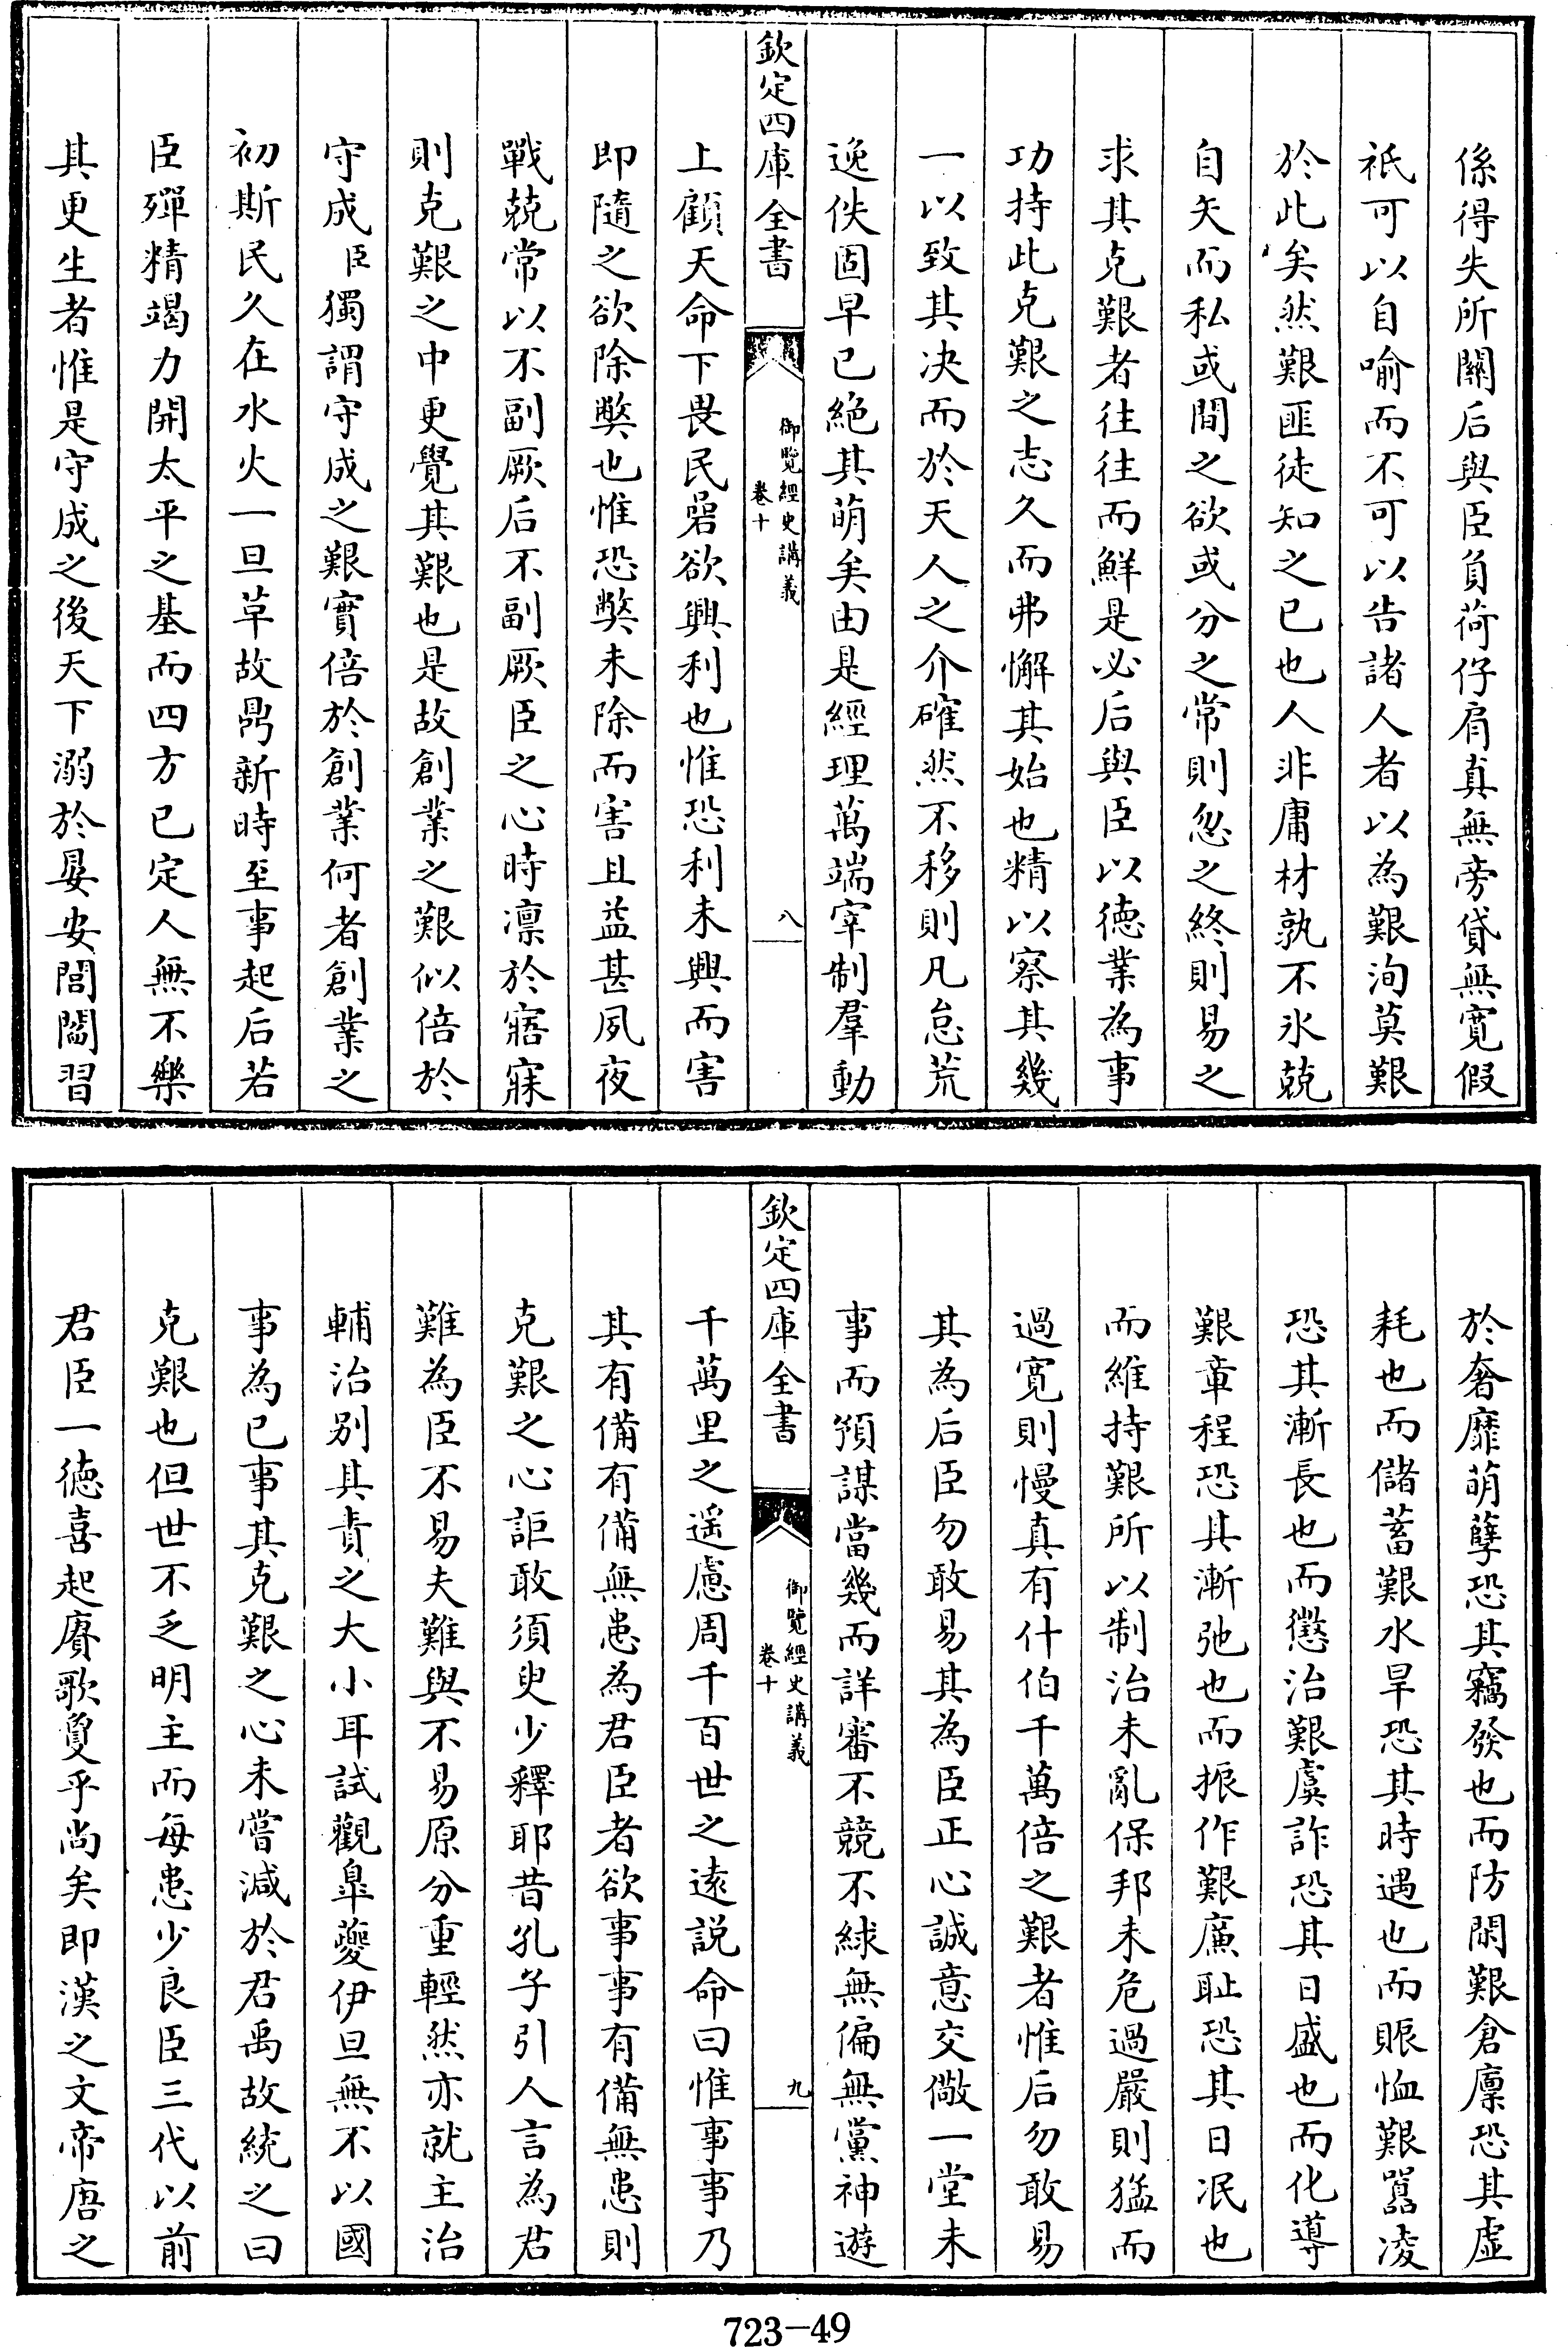 係得失所關后與臣負荷仔肩真無旁貸無寛假
祇可以自喻而不可以告諸人者以為艱洵莫艱
於此矣然艱匪徒知之已也人非庸材孰不氷兢
自矢而私或間之欲或分之常則忽之終則易之
求其克艱者往往而鮮是必后與臣以德業為事
功持此克艱之志久而弗懈其始也精以察其幾
一以致其決而於天人之介確然不移則凡怠荒
逸佚固早已絶其萌矣由是經理萬端宰制羣動
欽定四庫全書
御覽經史講義
卷十
八
上顧天命下畏民碞欲興利也惟恐利未興而害
即隨之欲除弊也惟恐弊未除而害且益甚夙夜
戰兢常以不副厥后不副厥臣之心時凛於寤寐
則克艱之中更覺其艱也是故創業之艱似倍於
守成臣獨謂守成之艱實倍於創業何者創業之
初斯民久在水火一旦革故鼎新時至事起后若
臣殫精竭力開太平之基而四方已定人無不樂
其更生者惟是守成之後天下溺於晏安閭閻習
於奢靡萌孽恐其竊發也而防閑艱倉廩恐其虚
耗也而儲蓄艱水旱恐其時遇也而賑恤艱囂凌
恐其漸長也而懲治艱虞詐恐其日盛也而化導
艱章程恐其漸弛也而振作艱廉恥恐其日泯也
而維持艱所以制治未亂保邦未危過嚴則猛而
過寛則慢真有什伯千萬倍之艱者惟后勿敢易
其為后臣勿敢易其為臣正心誠意交儆一堂未
事而預謀當幾而詳審不競不絿無偏無黨神遊
欽定四庫全書
御覽經史講義
卷十
九
千萬里之遥慮周千百世之遠説命曰惟事事乃
其有備有備無患為君臣者欲事事有備無患則
克艱之心詎敢須臾少釋耶昔孔子引人言為君
難為臣不易夫難與不易原分重輕然亦就主治
輔治别其責之大小耳試觀臯夔伊旦無不以國
事為已事其克艱之心未嘗減於君禹故統之曰
克艱也但世不乏明主而每患少良臣三代以前
君臣一徳喜起賡歌敻乎尚矣即漢之文帝唐之
723-49